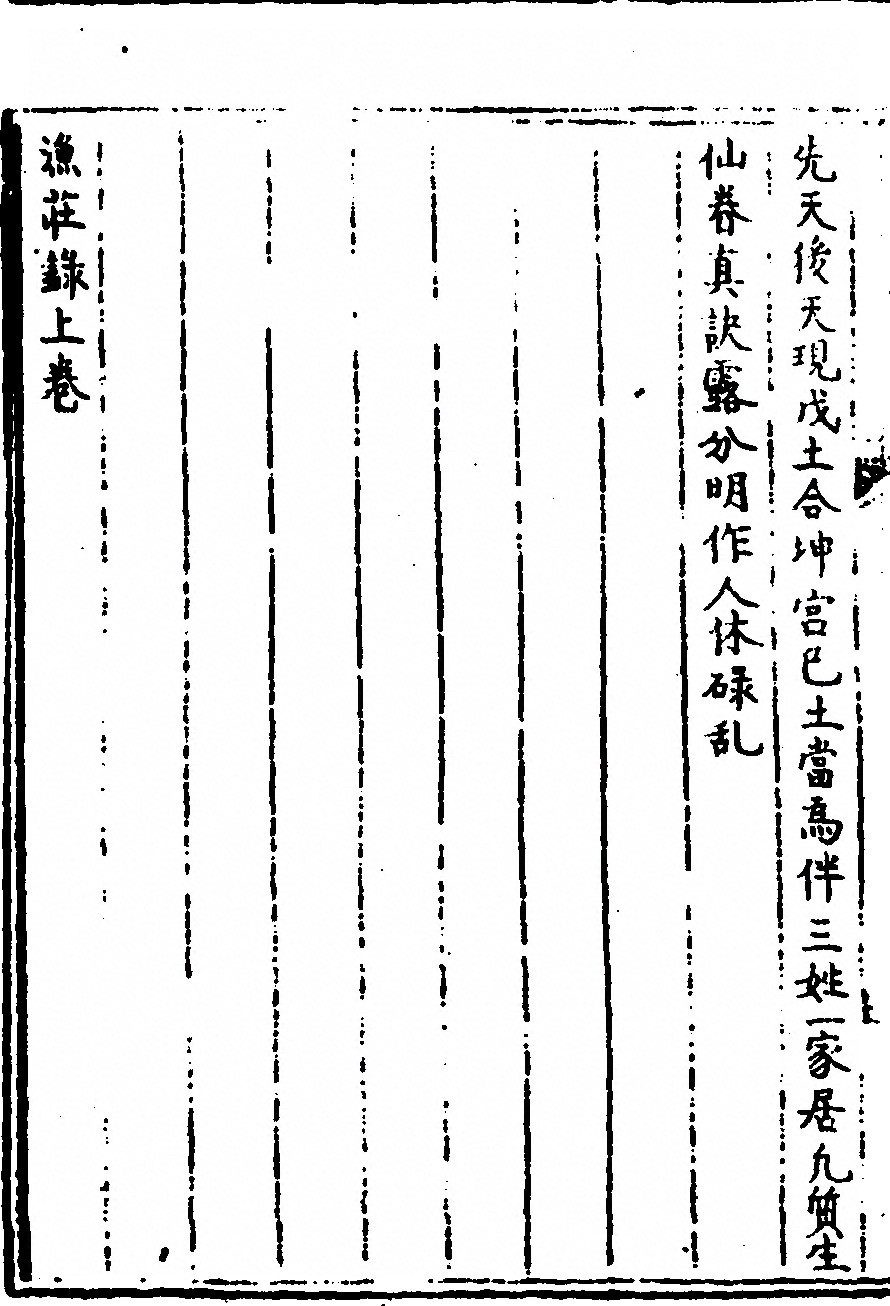 先天後天現戊土合坤宮已土當為伴三姓一家居凢質生
仙眷真訣露分明作人休碌乱
漁莊錄上卷